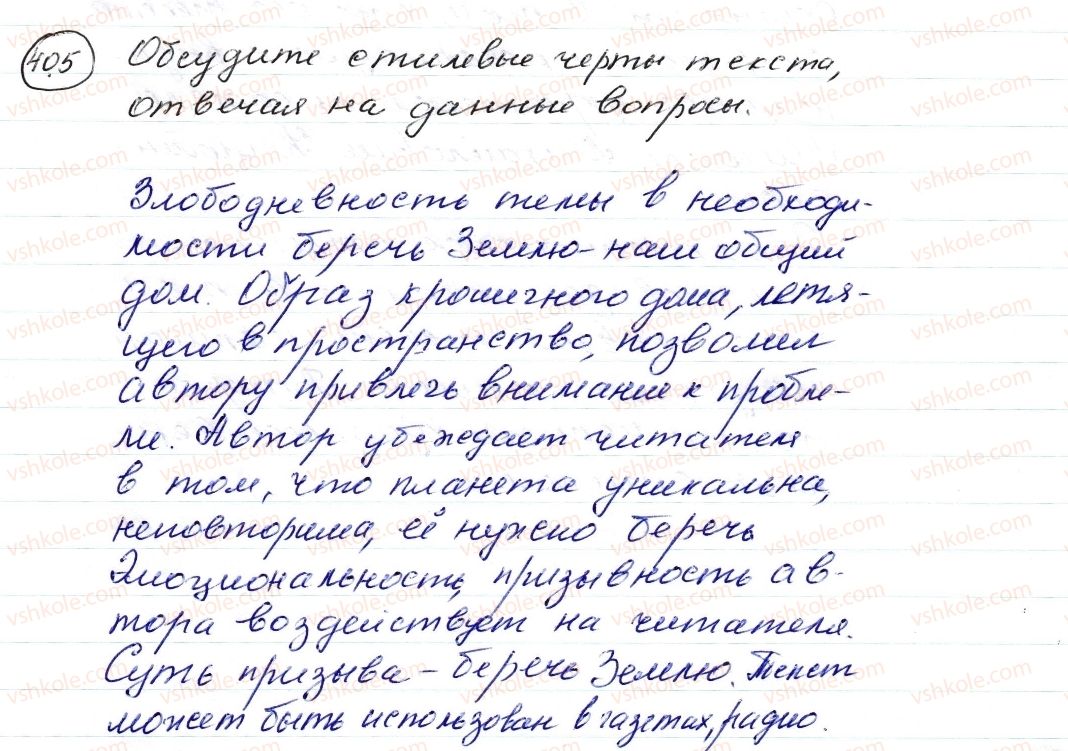 405 Обсудите стилевые черты текста,
отвечая на данные вопросы.
Злободневность темы в необходи-
мости беречь Землю - наш общий
дом. Образ крошечного дома, летя-
щего в пространство, позволил
автору привлечь внимание к пробле-
ме. Автор убеждает читателя
в том, что планета уникальна,
неповторима, её нужно беречь
Эмоциональность, призывность ав-
тора воздействует на читателя.
Суть призыва - беречь Землю. Текст
может быть использован в газетах, радио.